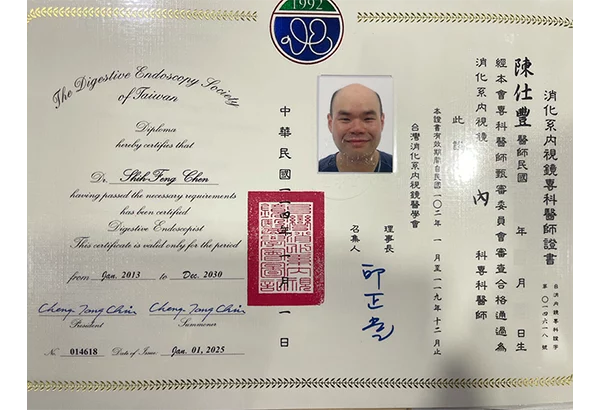 1992
The Digestive Endoscopy Society
of Taiwan
Diploma
hereby certifies that
Dr. Shih-Feng Chen
having passed the necessary requirements
has been certified
Digestive Endoscopist
This certificate is valid only for the period
from Jan. 2013 to Dec. 2030
Cheng Tang Chiu Cheng Tang Chiu
President Summoner
No 014618 Date of Issue: Jan. 01, 2025
消化系內視鏡專科醫師證書
陳仕豐醫師民國 年 月 日生
經本會專科醫師甄審委員會審查合格通過為
消化系內視鏡 內 科專科醫師
此
本證書有效期間自民國一〇二年 一月至一一九年十二月止
台灣消化系內視鏡醫學會
理事長
召集人
邱正堂
中華民國一一四年 月一日